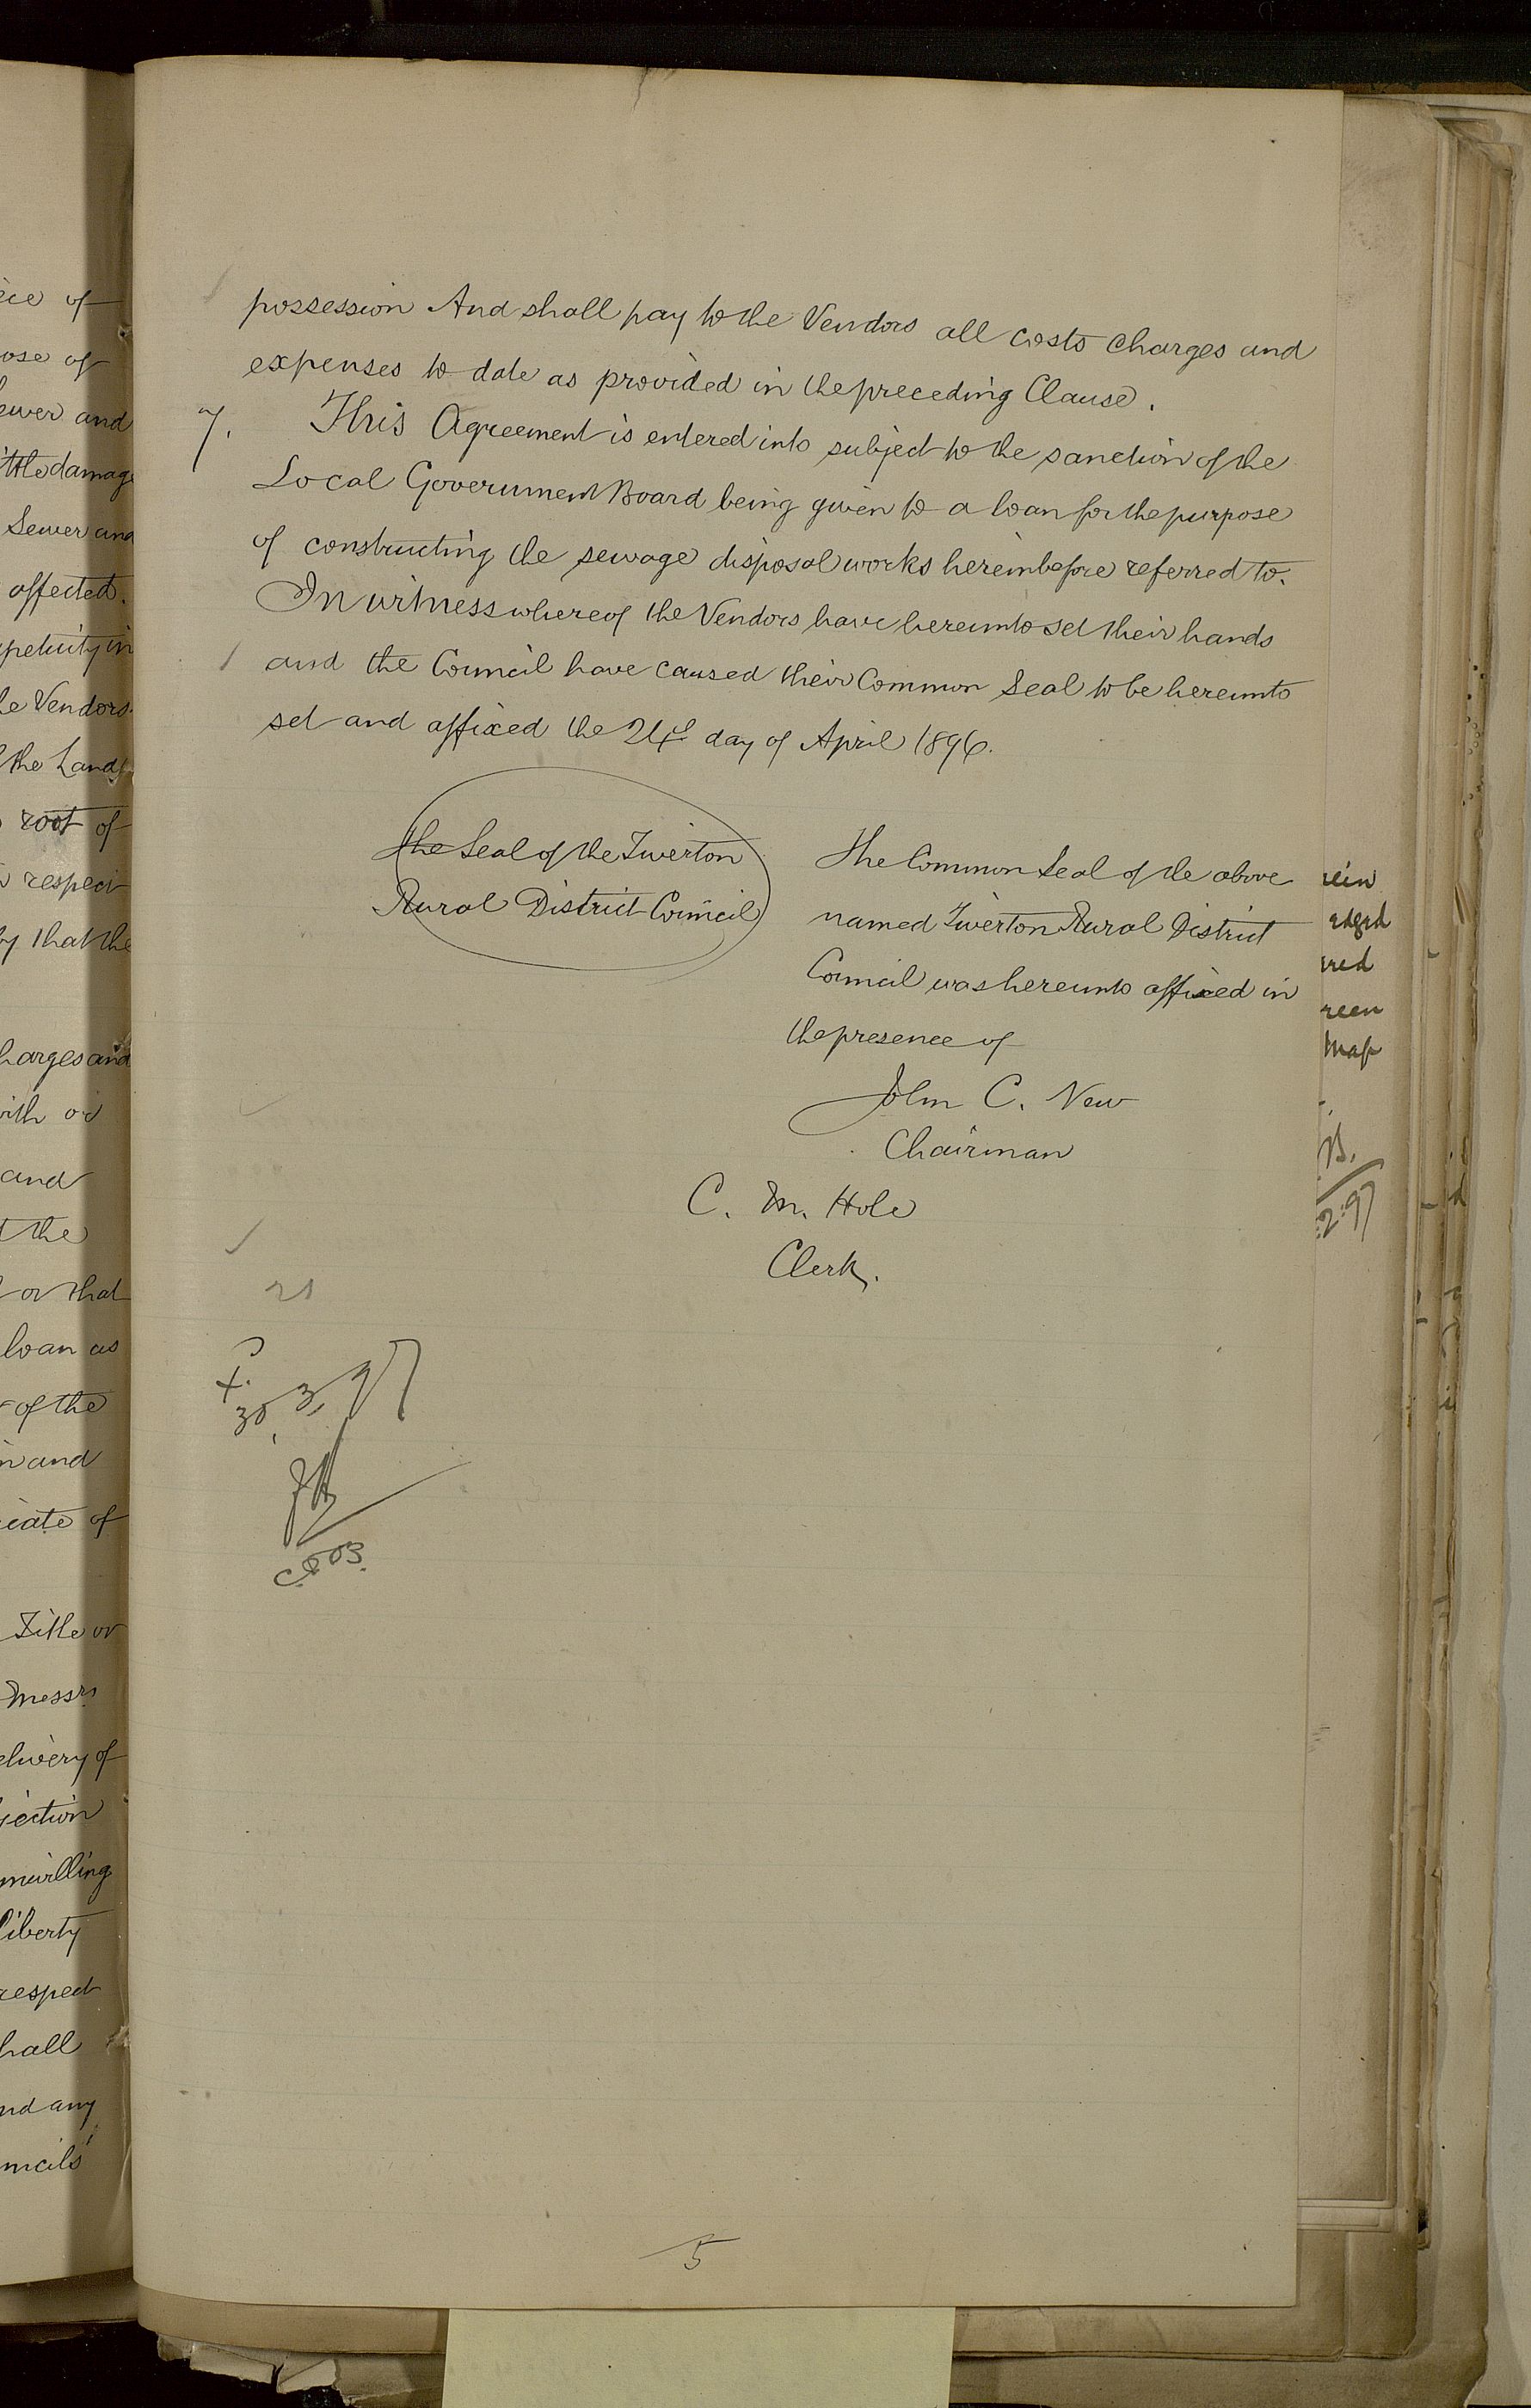 possession And shall pay to the Vendors all costs charges and
expenses to date as provided in the preceding Clause.
7. This Agreement is entered into subject to the sanction of the
Local Government Board being given to a loan for the purpose
of constructing the sewage disposal works hereinbefore referred to.
In witness whereof the Vendors have hereunto set their hands
and the Council have caused their Common Seal to be hereunto
set and affixed the 24th day of April 1896.
The Seal of the Tiverton
Rural District Council
The Common Seal of the above
named Tiverton Rural District
Council was hereunto affixed in
the presence of
John C. New
Chairman
C. M. Hole
Clerk.
21
30, 3, 97
5
and
damage
Sewer and
affected.
the Vendors.
the Land
root of
respect
that the
and
and
the
or that
loan as
of the
and
of
Title or
Messrs
of
liberty
respect
any
red
Map